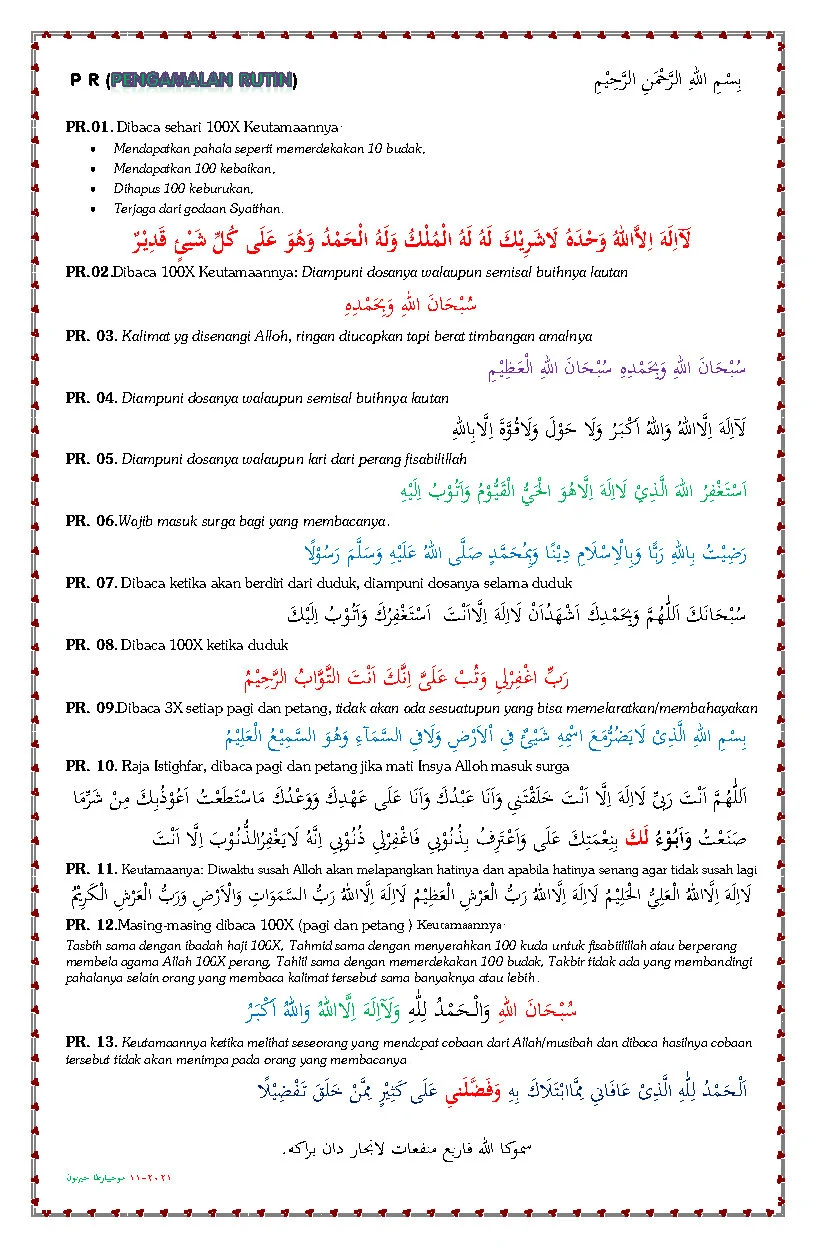 P R (PENGAMALAN RUTIN)
بِسْمِ اللهِ الرَّحْمَنِ الرَّحِيْمِ
PR.01. Dibaca sehari 100X Keutamaannya:
• Mendapatkan pahala seperti memerdekakan 10 budak,
• Mendapatkan 100 kebaikan,
• Dihapus 100 keburukan,
• Terjaga dari godaan Syaithan.
لَآاِلَهَ اِلاَّاللهُ وَحْدَهُ لَاشَرِيْكَ لَهُ لَهُ الْمُلْكُ وَلَهُ الْحَمْدُ وَهُوَ عَلَى كُلِّ شَيْئٍ قَدِيْرٌ
PR.02.Dibaca 100X Keutamaannya: Diampuni dosanya walaupun semisal buihnya lautan
سُبْحَانَ اللهِ وَبِحَمْدِهِ
PR. 03. Kalimat yg disenangi Alloh, ringan diucapkan tapi berat timbangan amalnya
سُبْحَانَ اللهِ وَبِحَمْدِهِ سُبْحَانَ اللهِ الْعَظِيْمِ
PR. 04. Diampuni dosanya walaupun semisal buihnya lautan
لَآاِلَهَ اِلَّااللهُ وَاللهُ اَكْبَرُ وَلَا حَوْلَ وَلَاقُوَّةَ اِلَّابِاللهِ
PR. 05. Diampuni dosanya walaupun lari dari perang fisabilillah
اَسْتَغْفِرُ اللهَ الَّذِيْ لَااِلَهَ اِلَّاهُوَ الْحَيُّ الْقَيُّوْمُ وَاَتُوْبُ اِلَيْهِ
PR. 06.Wajib masuk surga bagi yang membacanya.
رَضِيْتُ بِاللهِ رَبًّا وَبِالْاِسْلَامِ دِيْنًا وَبِمُحَمَّدٍ صَلَّى اللهُ عَلَيْهِ وَسَلَّمَ رَسُوْلًا
PR. 07. Dibaca ketika akan berdiri dari duduk, diampuni dosanya selama duduk
سُبْحَانَكَ اَللّٰهُمَّ وَبِحَمْدِكَ اَشْهَدُاَنْ لَااِلَهَ اِلَّااَنْتَ اَسْتَغْفِرُكَ وَاَتُوْبُ اِلَيْكَ
PR. 08. Dibaca 100X ketika duduk
رَبِّ اغْفِرْلِي وَتُبْ عَلَيَّ اِنَّكَ اَنْتَ التَّوَّابُ الرَّحِيْمُ
PR. 09.Dibaca 3X setiap pagi dan petang, tidak akan ada sesuatupun yang bisa memelaratkan/membahayakan
بِسْمِ اللهِ الَّذِيْ لَايَضُرُّمَعَ اسْمِهِ شَيْئٌ فِي اْلاَرْضِ وَلَافِي السَّمَآءِ وَهُوَ السَّمِيْعُ الْعَلِيْمُ
PR. 10. Raja Istighfar, dibaca pagi dan petang jika mati Insya Alloh masuk surga
اَللّٰهُمَّ اَنْتَ رَبِّيْ لَااِلَهَ اِلَّا اَنْتَ خَلَقْتَنِي وَاَنَا عَبْدُكَ وَاَنَا عَلَى عَهْدِكَ وَوَعْدُكَ مَاسْتَطَعْتُ اَعُوْذُبِكَ مِنْ شَرِّمَا
صَنَعْتُ وَاَبُوْءُ لَكَ بِنِعْمَتِكَ عَلَى وَاَعْتَرِفُ بِذُنُوْبِي فَاغْفِرْلِي ذُنُوْبِي اِنَّهُ لَايَغْفِرُالذُّنُوْبَ اِلَّا اَنْتَ
PR. 11. Keutamaanya: Diwaktu susah Alloh akan melapangkan hatinya dan apabila hatinya senang agar tidak susah lagi
لَااِلَهَ اِلَّااللهُ الْعَلِيُّ الْحَلِيْمُ لَااِلَهَ اِلَّااللهُ رَبُّ الْعَرْشِ الْعَظِيْمُ لَااِلَهَ اِلَّااللهُ رَبُّ السَّمَوَاتِ وَالْاَرْضِ وَرَبُّ الْعَرْشِ الْكَرِيْمُ
PR. 12.Masing-masing dibaca 100X (pagi dan petang ) Keutamaannya:
Tasbih sama dengan ibadah haji 100X, Tahmid sama dengan menyerahkan 100 kuda untuk fisabiilillah atau berperang
membela agama Allah 100X perang, Tahlil sama dengan memerdekakan 100 budak, Takbir tidak ada yang membandingi
pahalanya selain orang yang membaca kalimat tersebut sama banyaknya atau lebih.
سُبْحَانَ اللهِ وَالْحَمْدُ لِلّٰهِ وَلَآاِلَهَ اِلَّااللهُ وَاللهُ اَكْبَرُ
PR. 13. Keutamaannya ketika melihat seseorang yang mendapat cobaan dari Allah/musibah dan dibaca hasilnya cobaan
tersebut tidak akan menimpa pada orang yang membacanya
اَلْحَمْدُ لِلّٰهِ الَّذِيْ عَافَانِي مِمَّاابْتَلَاكَ بِهِ وَفَضَّلَنِي عَلَى كَثِيْرٍ مِمَّنْ خَلَقَ تَفْضِيْلًا
سموكا الله فاريع منفعات لانجار دان براكه.
٢٠٢١-١١